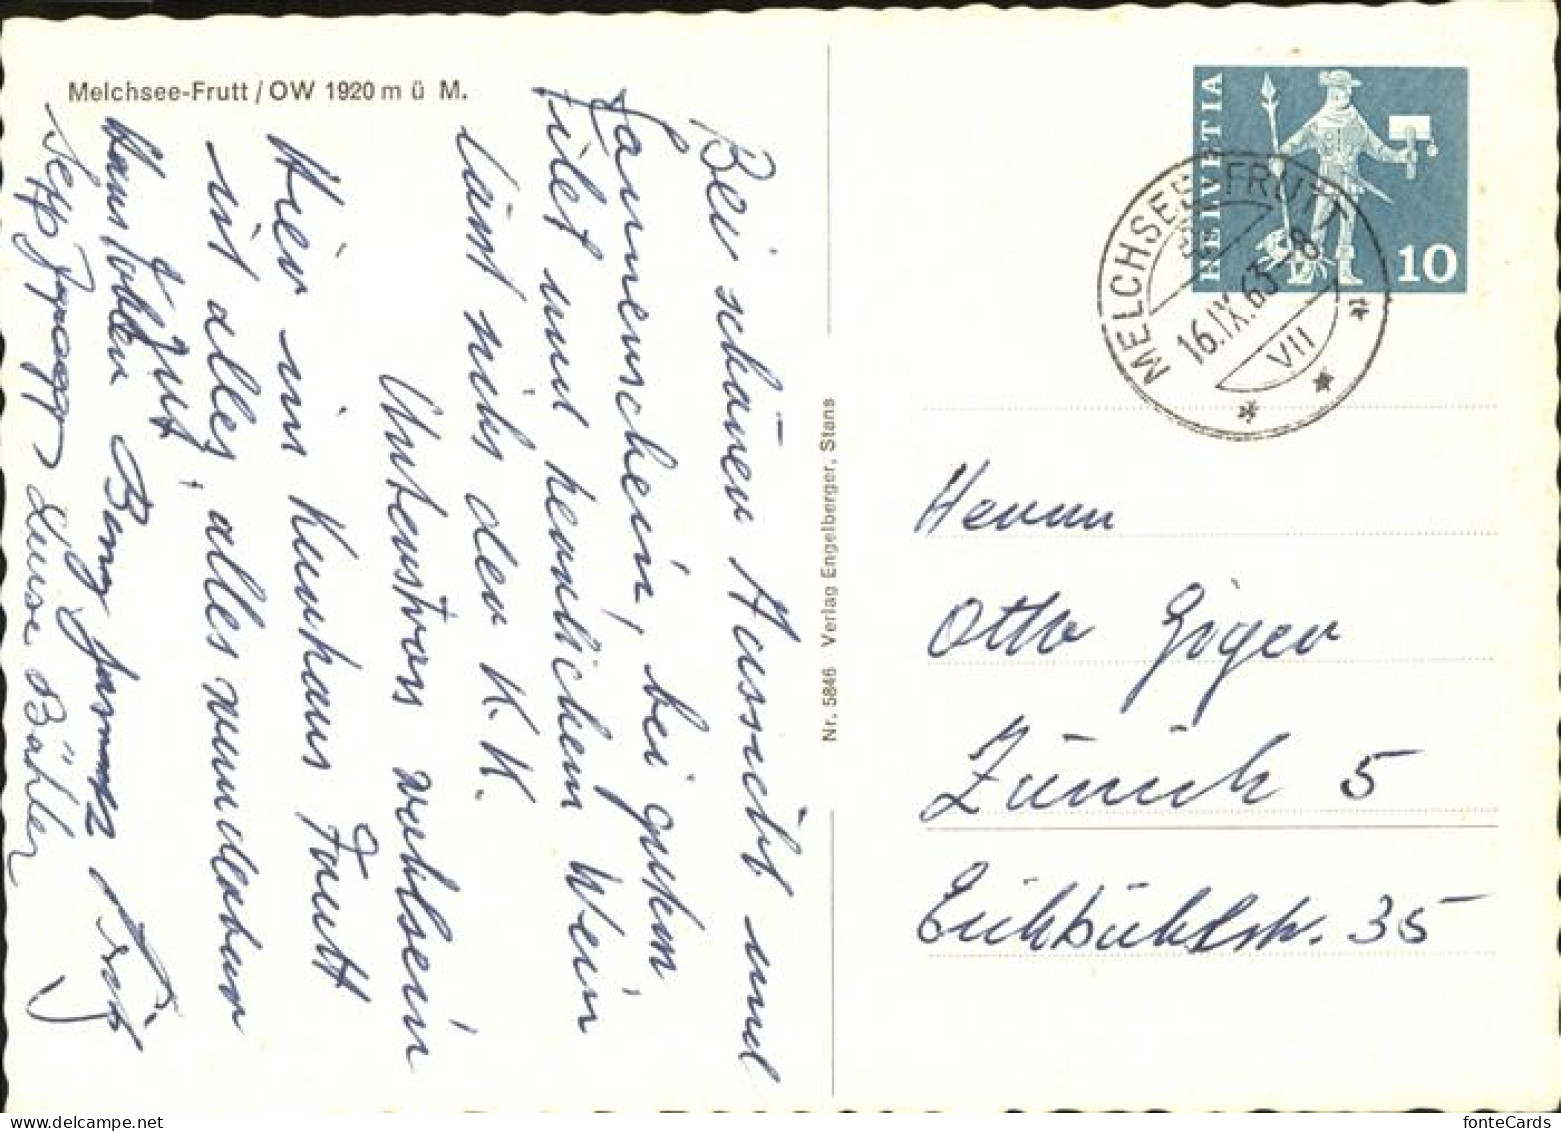 Melchsee-Frutt / OW 1920 m ü M.
Bei schöner Aussicht und
Sonnenschein, bei gutem
Filet und herrlichem Wein
lässt sichs der K. K.
Unterstrass wohlsein
Hier im Kurhaus Frutt
ist alles, alles wunderbar
& gut,
Nr. 5846 Verlag Engelberger, Stans
HELVETIA
10
MELCHSEE-FRUTT
16.IX.63-8
VII
Herrn
Otto Giger
Zürich 5
Eichbühlstr. 35
fonteCards